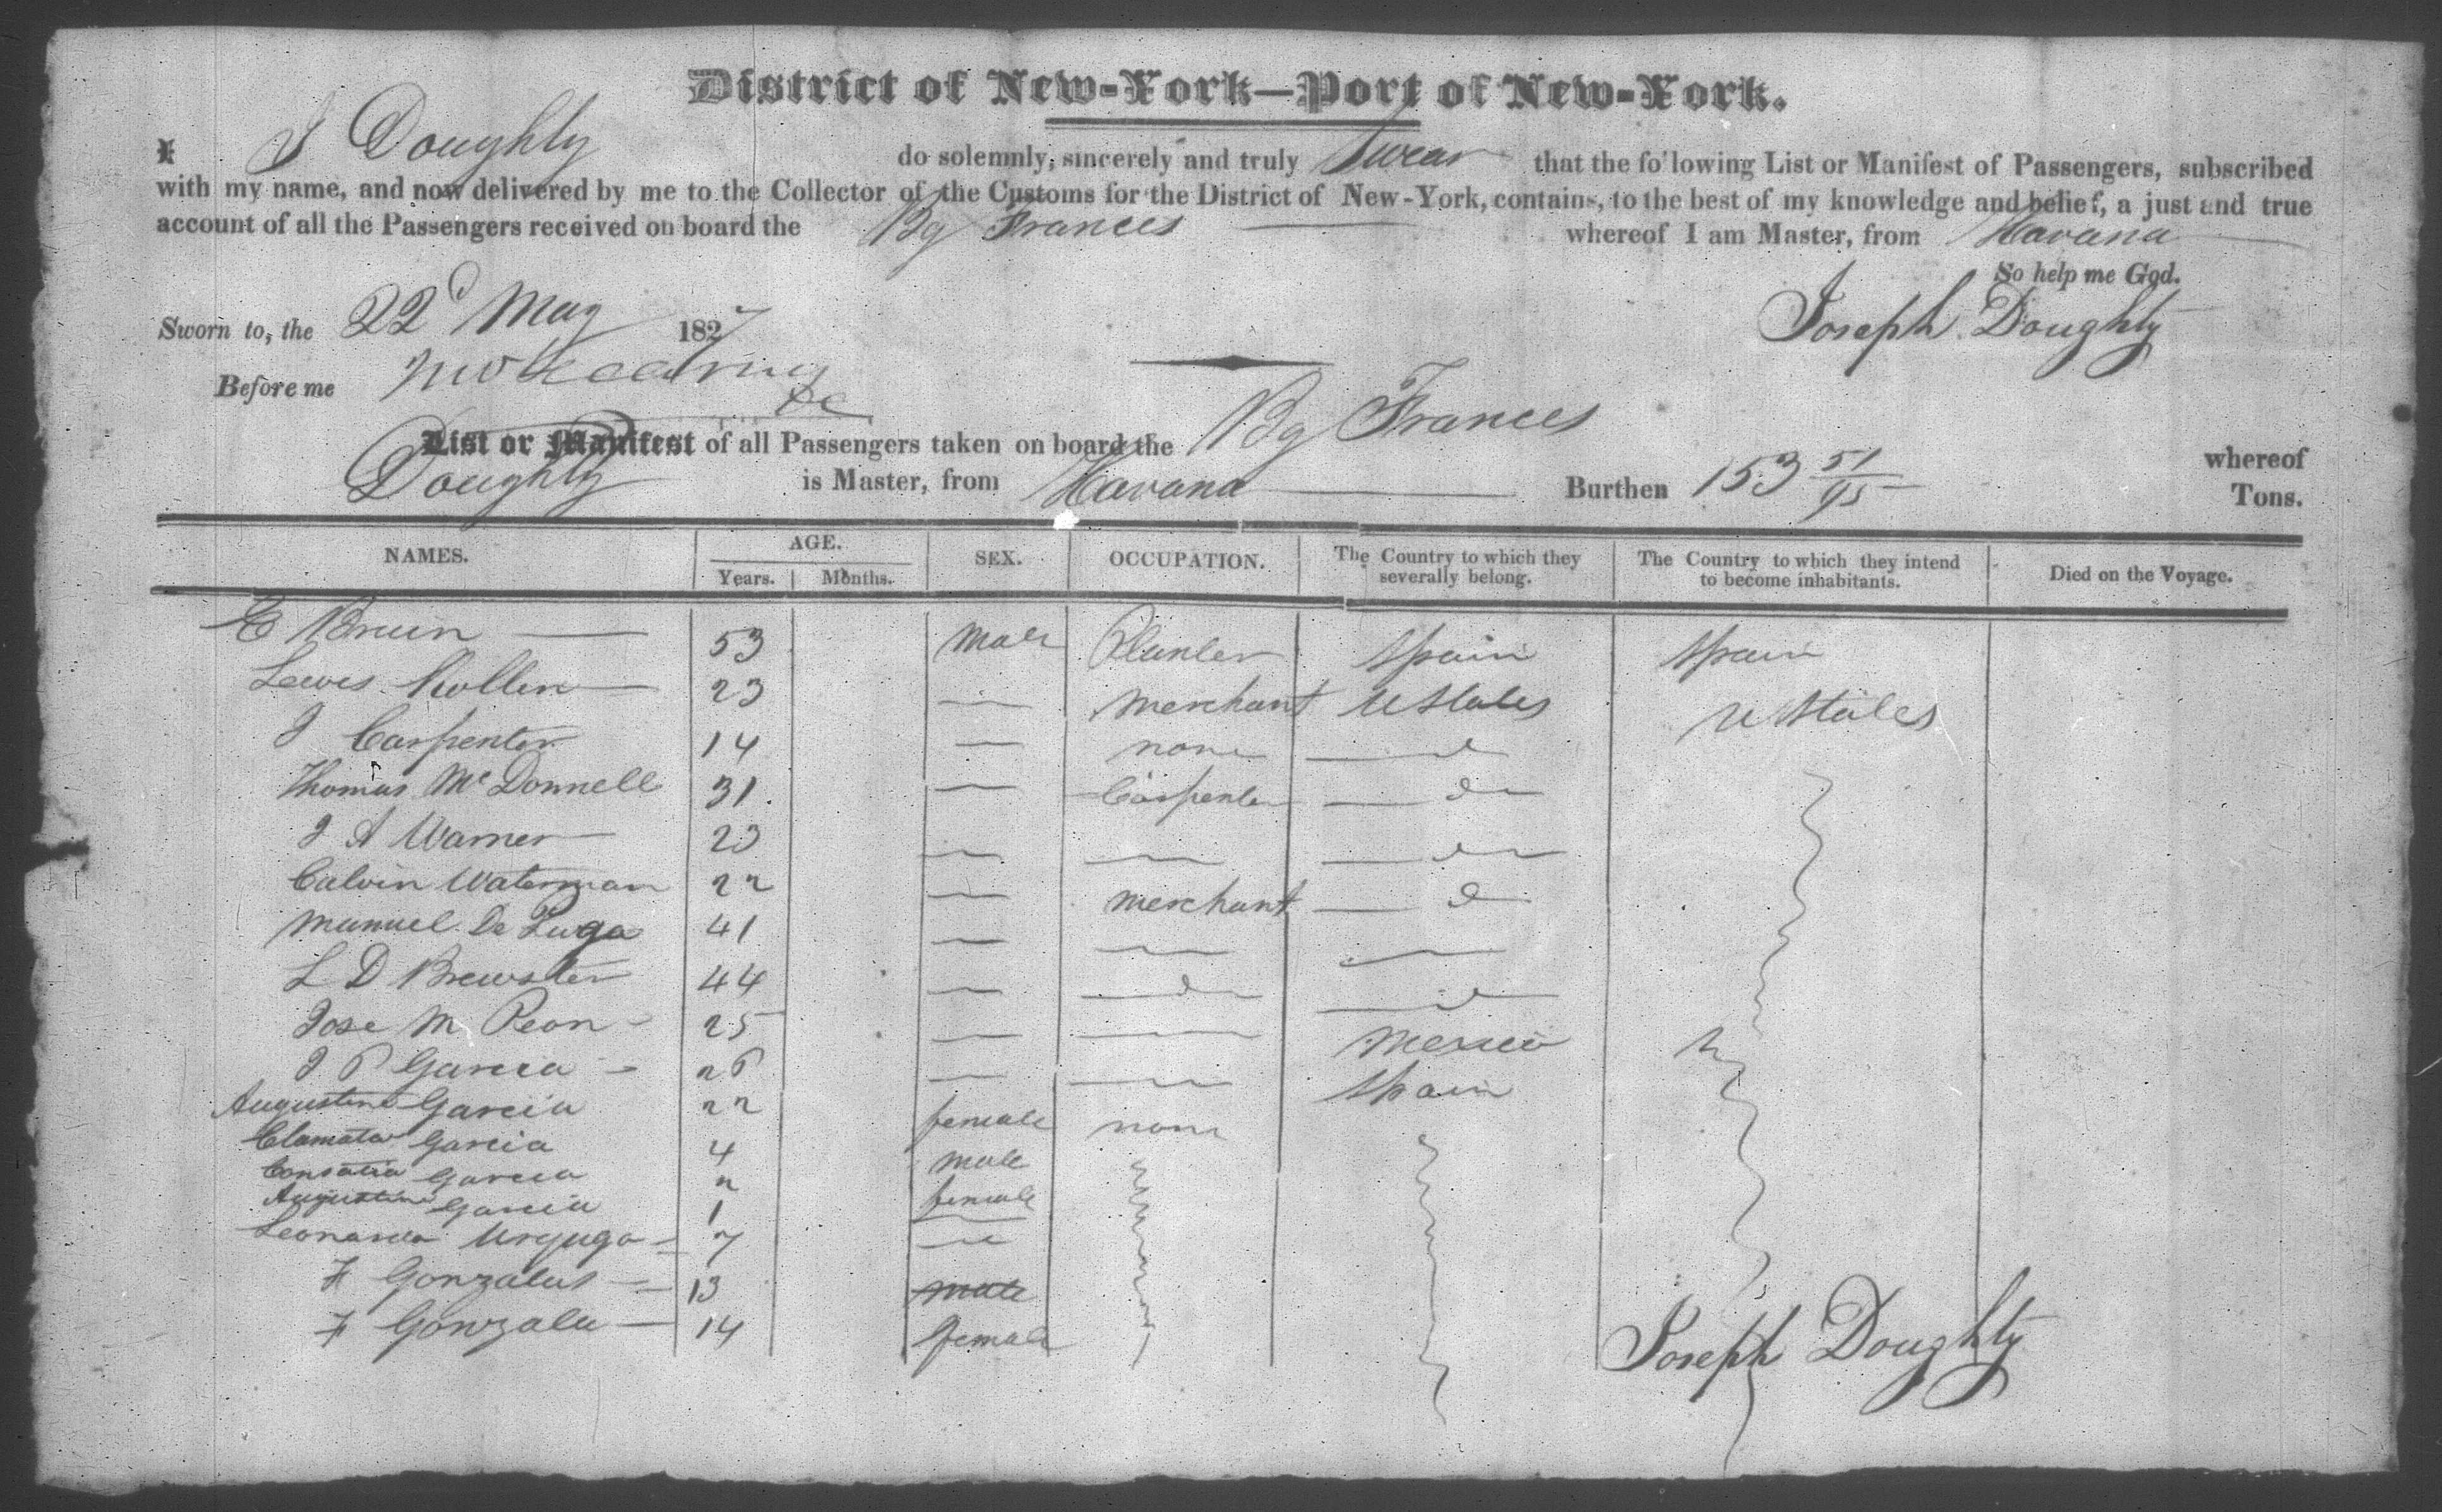 District of New-York—Port of New-York.
I J Doughty do solemnly, sincerely and truly Swear that the following List or Manifest of Passengers, subscribed
with my name, and now delivered by me to the Collector of the Customs for the District of New-York, contains, to the best of my knowledge and belief, a just and true
account of all the Passengers received on board the Bg Frances whereof I am Master, from Havana
So help me God.
Sworn to, the 22d May 1827 Joseph Doughty
Before me
List or Manifest of all Passengers taken on board the Bg Frances whereof
Doughty is Master, from Havana Burthen 153 51/95 Tons.
NAMES. AGE. Years. Months. SEX. OCCUPATION. The Country to which they severally belong. The Country to which they intend to become inhabitants. Died on the Voyage.
53 Male Planter Spain Spain
Lewis 23 — Merchant U States U States
J Carpenter 14 — none — d
Thomas McDonnell 31 — Carpenter — do
J A Warner 23 — — — do
Calvin Waterman 22 — Merchant — d
Manuel De 41 — — —
L D Brewster 44 — — d — — d —
Jose M Peon 25 — — Mexico
J P Garcia 26 — — Spain
Augustine Garcia 22 female none
Garcia 4 male
Garcia 2 female
Augustine Garcia 1 —
7 —
F Gonzalus 13 male
F Gonzale 14 female
Joseph Doughty